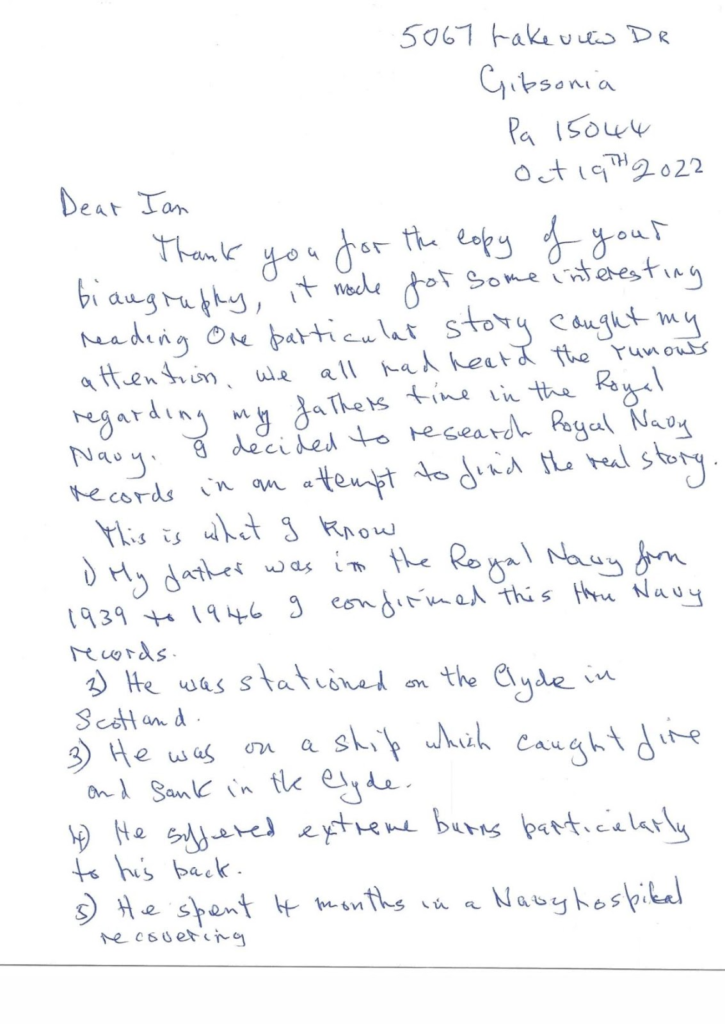 5067 Lakeview DR
Gibsonia
Pa 15044
Oct 19TH 2022
Dear Ian
Thank you for the copy of your
biaugraphy, it made for some interesting
reading One particular story caught my
attention. We all had heard the rumours
regarding my fathers time in the Royal
Navy. I decided to research Royal Navy
records in an attempt to find the real story.
This is what I know
1) My father was in the Royal Navy from
1939 to 1946 I confirmed this thru Navy
records.
2) He was stationed on the Clyde in
Scotland.
3) He was on a ship which caught fire
and sank in the Clyde.
4) He suffered extreme burns particularly
to his back.
5) He spent 4 months in a Navy hospital
recovering